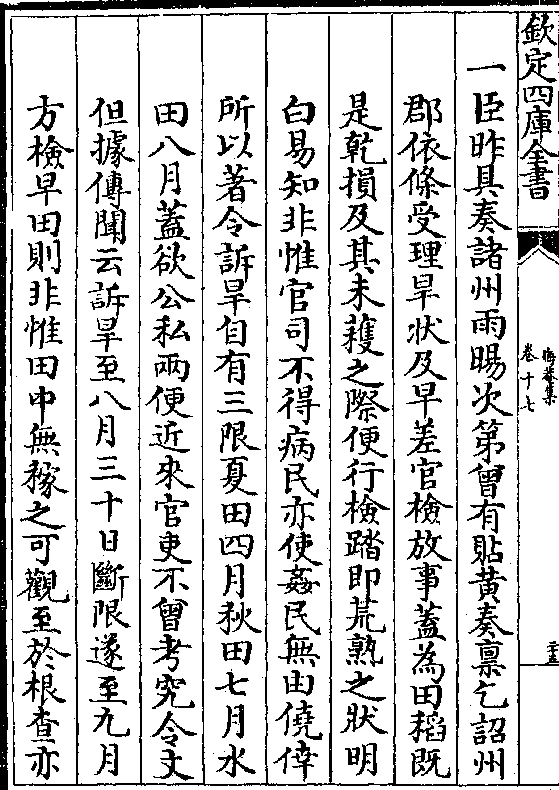 欽定四庫全書
晦菴集
卷十七
二十五
一臣昨具奏諸州雨暘次第曾有貼黄奏禀乞詔州
郡依條受理旱狀及早差官檢放事蓋為田稻既
是乾損及其未穫之際便行檢踏即荒熟之狀明
白易知非惟官司不得病民亦使姦民無由僥倖
所以著令訴旱自有三限夏田四月秋田七月水
田八月蓋欲公私兩便近來官吏不曾考究令文
但據傳聞云訴旱至八月三十日斷限遂至九月
方檢旱田則非惟田中無稼之可觀至於根查亦